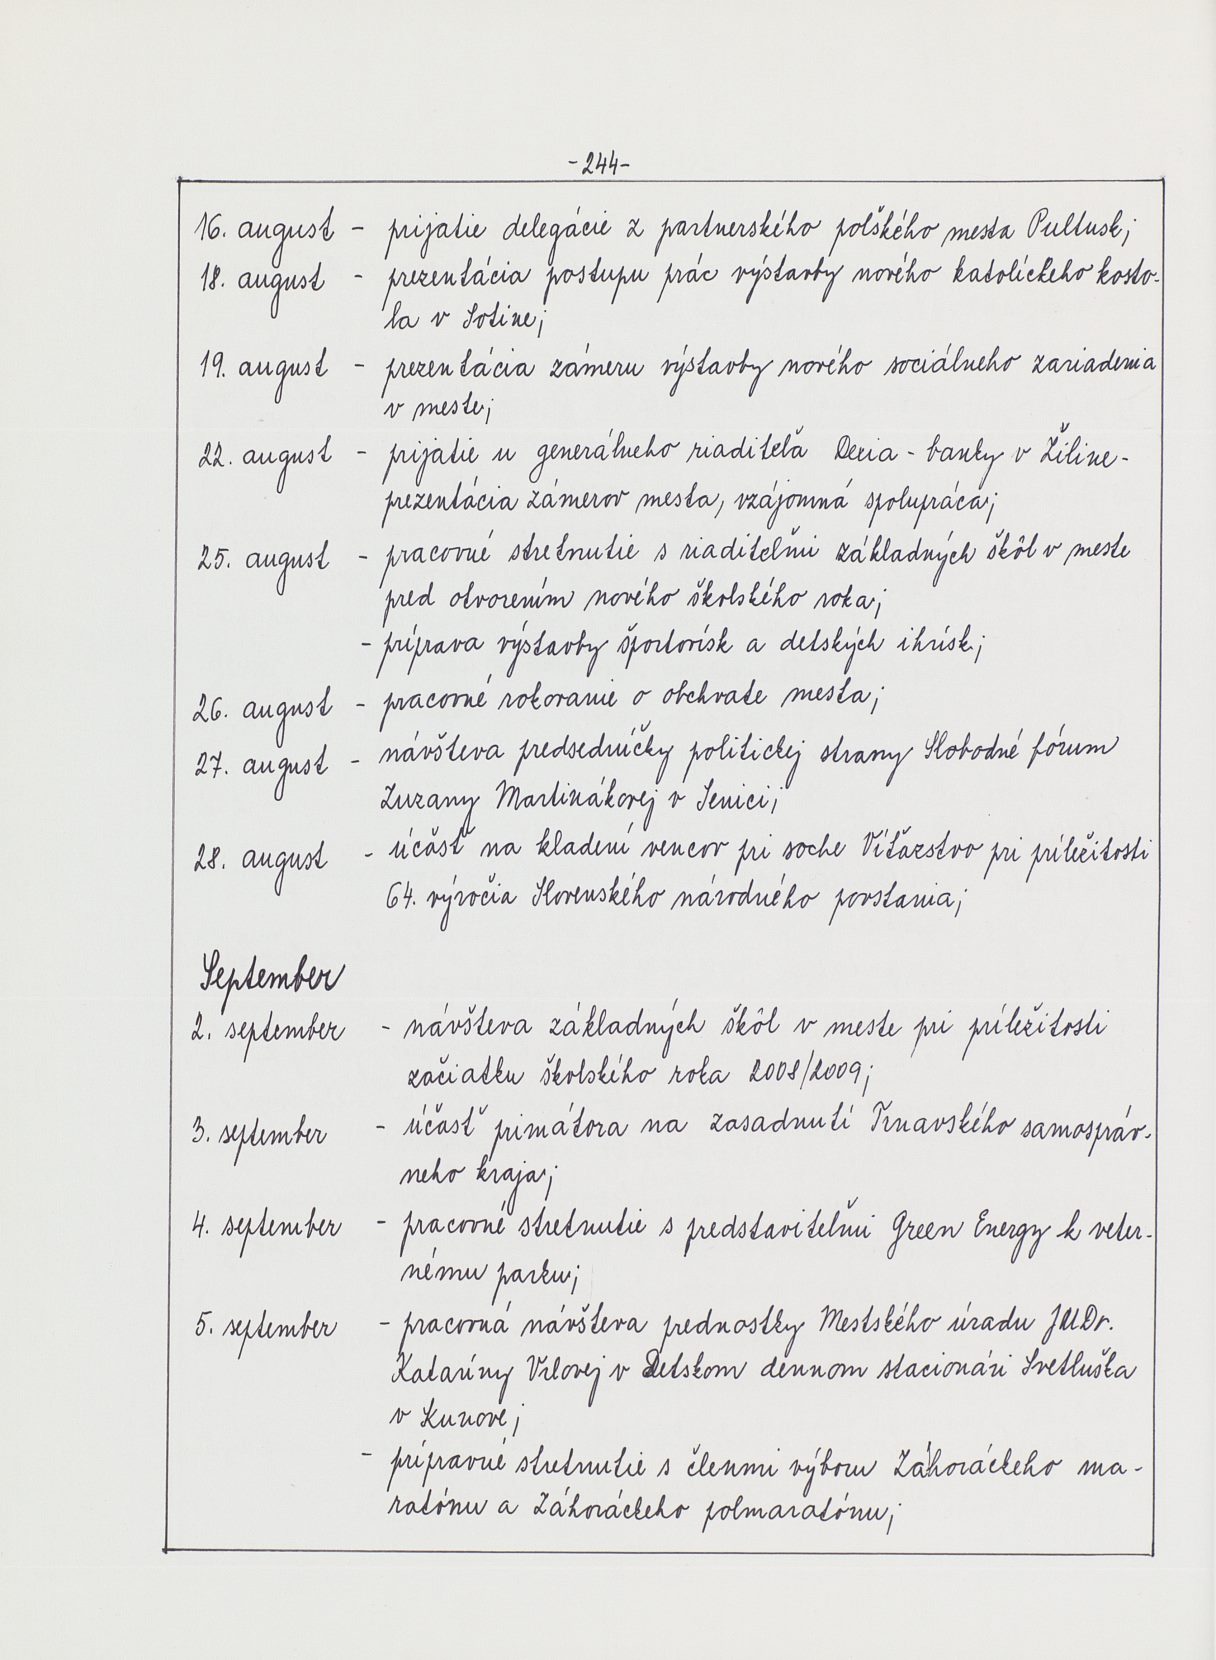 -244-
16. august - prijatie delegácie z partnerského poľského mesta Pultusk;
18. august - prezentácia postupu prác výstavby nového katolíckeho kosto-
la v Sotine;
19. august - prezentácia zámeru výstavby nového sociálneho zariadenia
v meste;
22. august - prijatie u generálneho riaditeľa Dexia - banky v Žiline -
prezentácia zámerov mesta, vzájomná spolupráca;
25. august - pracovné stretnutie s riaditeľmi základných škôl v meste
pred otvorením nového školského roka;
- príprava výstavby športovísk a detských ihrísk;
26. august - pracovné rokovanie o obchvate mesta;
27. august - návšteva predsedníčky politickej strany Slobodné fórum
Zuzany Martinákovej v Senici;
28. august - účasť na kladení vencov pri soche Víťazstvo pri príležitosti
64. výročia Slovenského národného povstania;
September
2. september - návšteva základných škôl v meste pri príležitosti
začiatku školského roka 2008/2009;
3. september - účasť primátora na zasadnutí Trnavského samospráv-
neho kraja;
4. september - pracovné stretnutie s predstaviteľmi Green Energy k veter-
nému parku;
5. september - pracovná návšteva prednostky Mestského úradu JUDr.
Kataríny Vrlovej v Detskom dennom stacionári Svetluška
v Kunove;
- prípravné stretnutie s členmi výboru Záhoráckeho ma-
ratónu a Záhoráckeho polmaratónu;